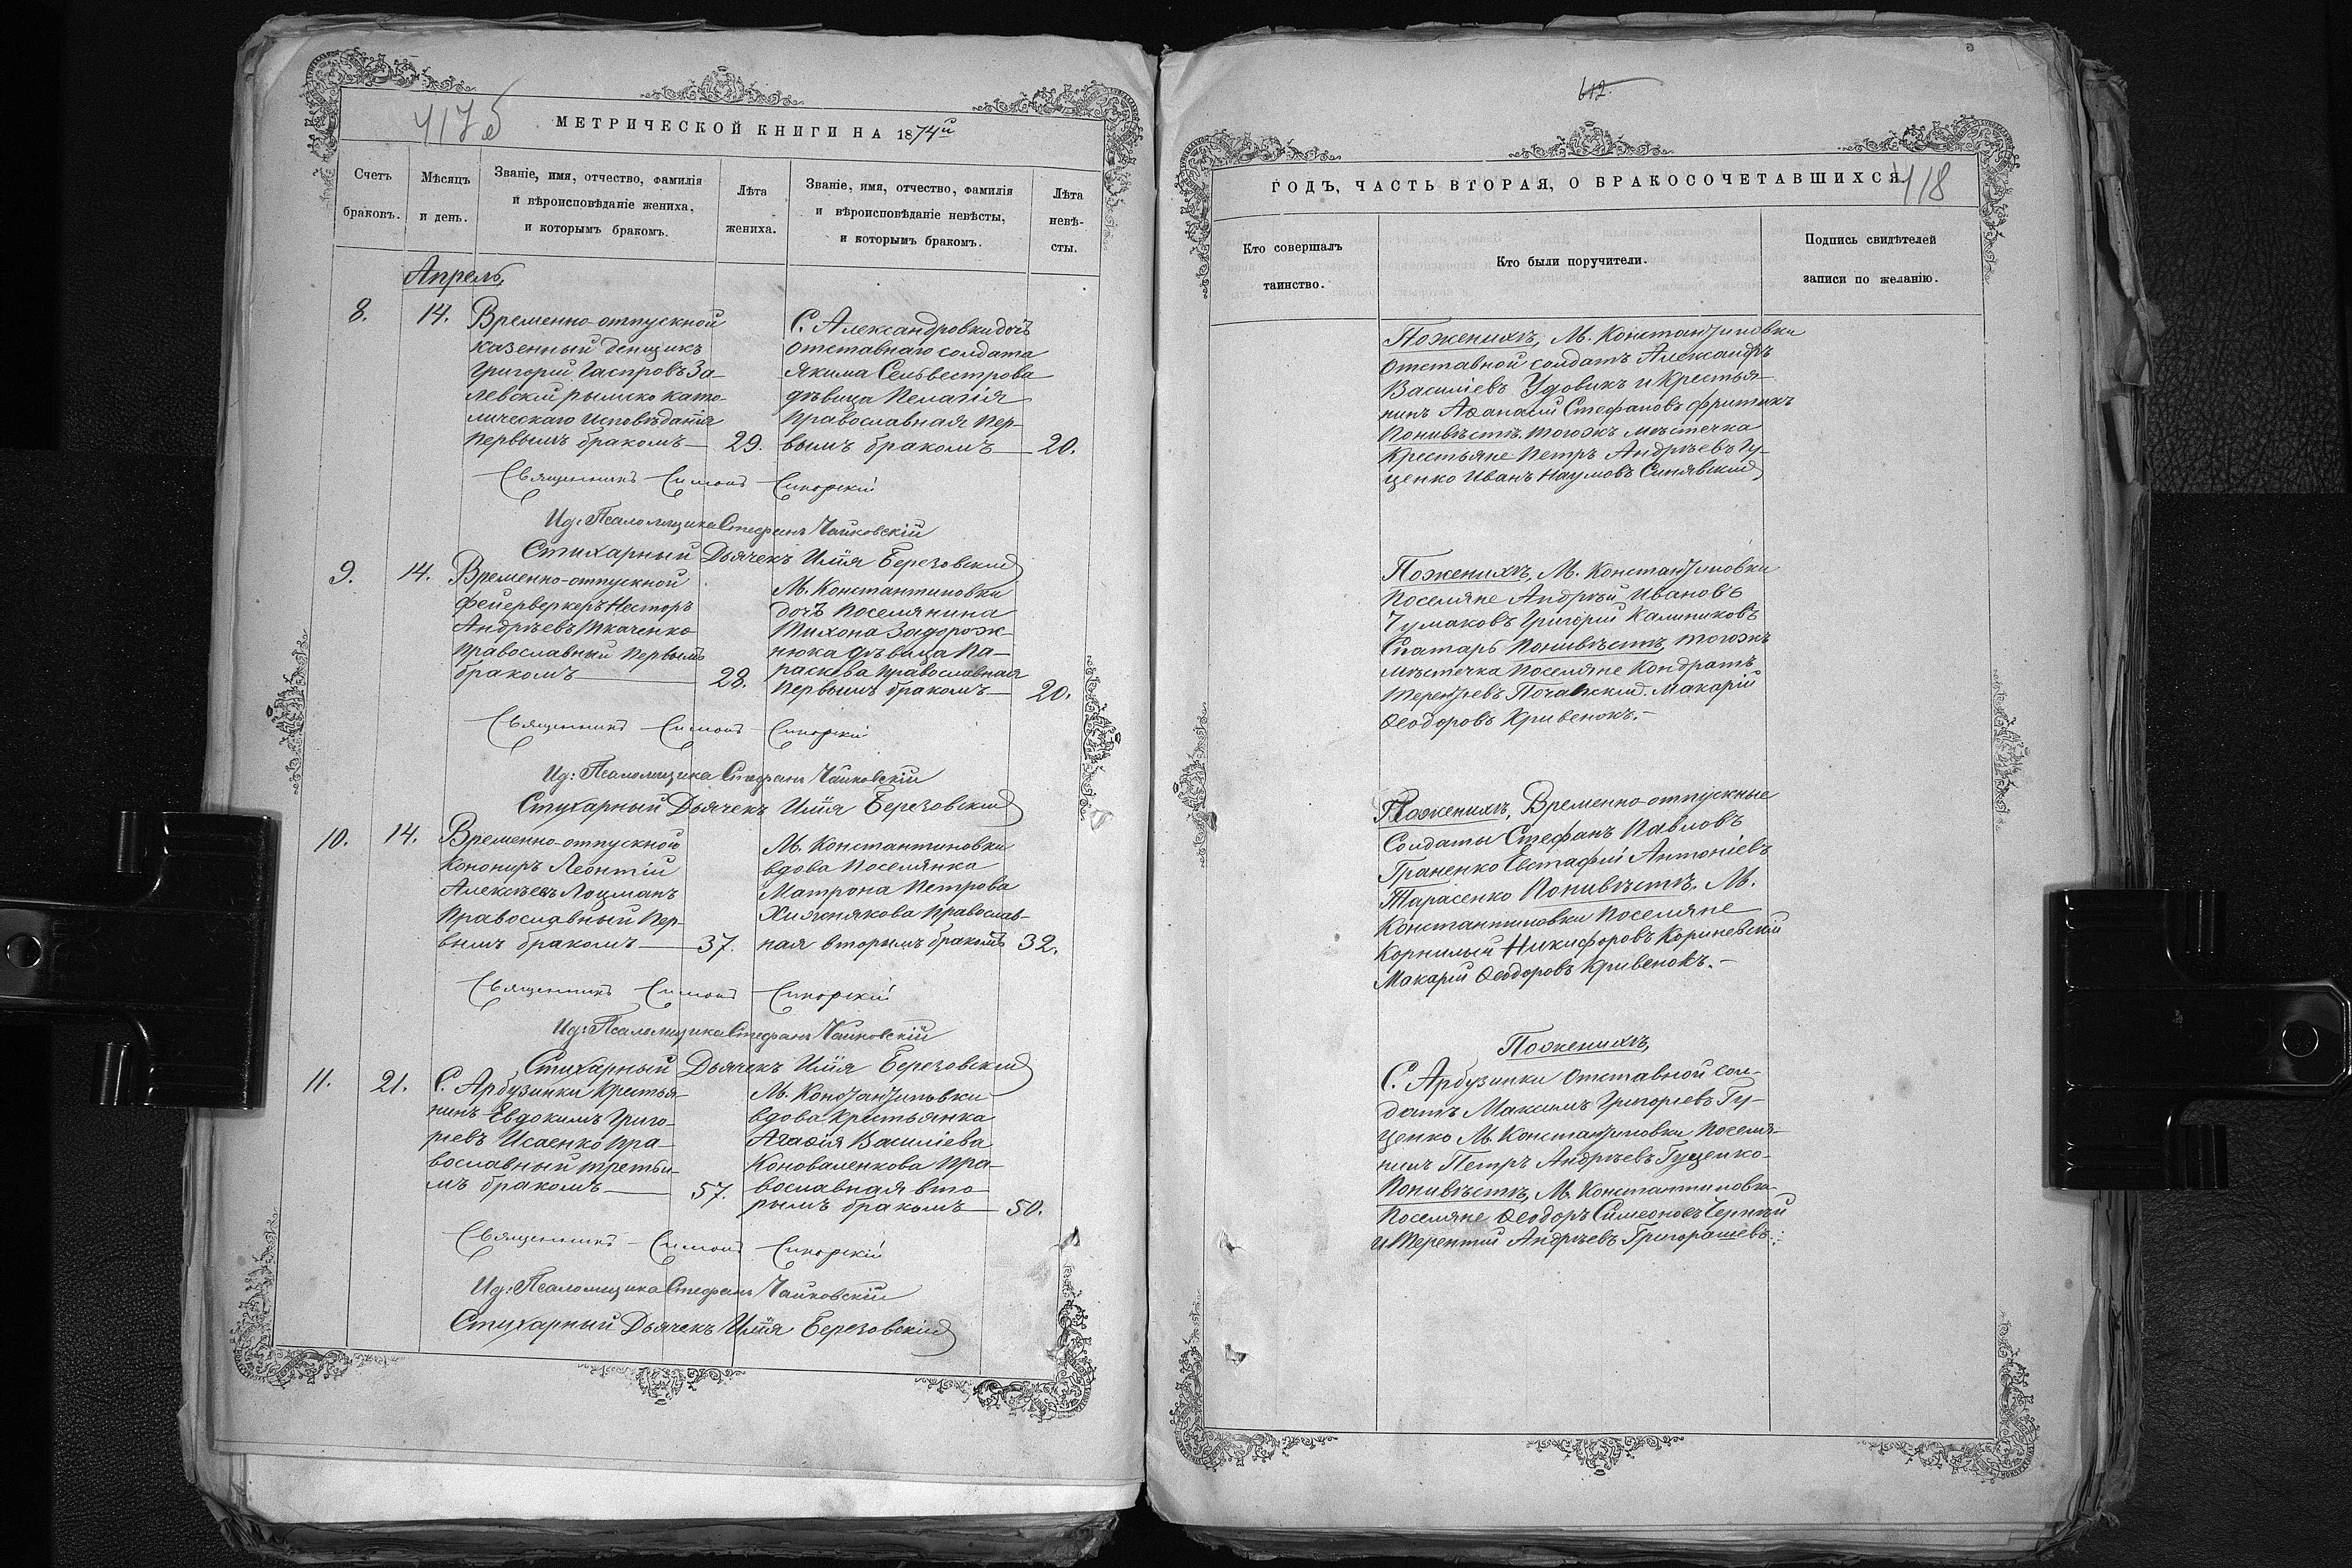 МЕТРИЧЕСКОЙ КНИГИ НА 1874й
Счетъ
браковъ.
Мѣсяцъ
и день.
Званіе, имя, отчество, фамилія
и вѣроисповѣданіе жениха,
и которымъ бракомъ.
Лѣта
жениха.
Званіе, имя, отчество, фамилія
и вѣроисповѣданіе невѣсты,
и которымъ бракомъ.
Лѣта
невѣ-
сты.
Апрель,
8.
14.
Временно-отпускной
казенный денщикъ
Григорій Гаспровъ За-
левскій рымско като-
лическаго исповѣданія
первымъ бракомъ
29.
С. Александровки дочь
отставнаго солдата
Якима Сельвестрова
дѣвица Пелагія
православная пер-
вымъ бракомъ
20.
Священникъ Симонъ Сикорскій
Ид: Псаломщика Стефанъ Чайковскій
Стихарный Дьячекъ Илія Березовскій
9.
14.
Временно-отпускной
фейерверкеръ Несторъ
Андрѣевъ Ткаченко
православный первымъ
бракомъ
28.
М. Константиновки
дочь поселянина
Тихона Задорож-
нюка дѣвица Па-
раскева православная
первымъ бракомъ
20.
Священникъ Симонъ Сикорскій
Ид: Псаломщика Стефанъ Чайковскій
Стихарный Дьячекъ Илія Березовскій
10.
14.
Временно-отпускной
Конониръ Леонтій
Алексѣевъ Лоцманъ
православный пер-
вымъ бракомъ
37.
М. Константиновки
вдова поселянка
Матрона Петрова
Хижнякова православ-
ная вторымъ бракомъ
32.
Священникъ Симонъ Сикорскій
Ид: Псаломщика Стефанъ Чайковскій
Стихарный Дьячекъ Илія Березовскій
11.
21.
С. Арбузинки крестья-
нинъ Евдокимъ Григо-
рьевъ Исаенко пра-
вославный третьи-
мъ бракомъ
57.
М. Константиновки
вдова крестьянка
Агафія Василіева
Коноваленкова пра-
вославная вто-
рымъ бракомъ
50.
Священникъ Симонъ Сикорскій
Ид: Псаломщика Стефанъ Чайковскій
Стихарный Дьячекъ Илія Березовскій
612.
ГОДЪ, ЧАСТЬ ВТОРАЯ, О БРАКОСОЧЕТАВШИХСЯ
118
Кто совершалъ
таинство.
Кто были поручители.
Подпись свидѣтелей
записи по желанію.
Поженихѣ, М. Константиновки
отставной солдатъ Александръ
Василіевъ Удовикъ и крестья-
нинъ Аѳанасій Стефановъ
Поневѣстѣ, тогожъ мѣстечка
крестьяне Петръ Андрѣевъ Гу-
ценко Иванъ Наумовъ Синявскій
Поженихѣ, М. Константиновки
поселяне Андрѣй Ивановъ
Чумаковъ Григорій Калиниковъ
Спатарь Поневѣстѣ, тогожъ
мѣстечка поселяне Кондратъ
Терентьевъ Почапскій. Макарій
Ѳеодоровъ Кривенокъ.-
Поженихѣ, Временно-отпускные
Солдаты Стефанъ Павловъ
Граненко Евстафій Антоніевъ
Тарасенко Поневѣстѣ, М.
Константиновки поселяне
Корнилый Никифоровъ Кориневскій
Макарій Ѳеодоровъ Кривенокъ.-
Поженихѣ,
С. Арбузинки отставной сол-
датъ Максимъ Григорьевъ Гу-
ценко М. Константиновки поселя-
нинъ Петръ Андрѣевъ Гуценко-
Поневѣстѣ, М. Константиновки
поселяне Ѳеодоръ Симеоновъ Черный
и Терентій Андрѣевъ Григорашевъ.